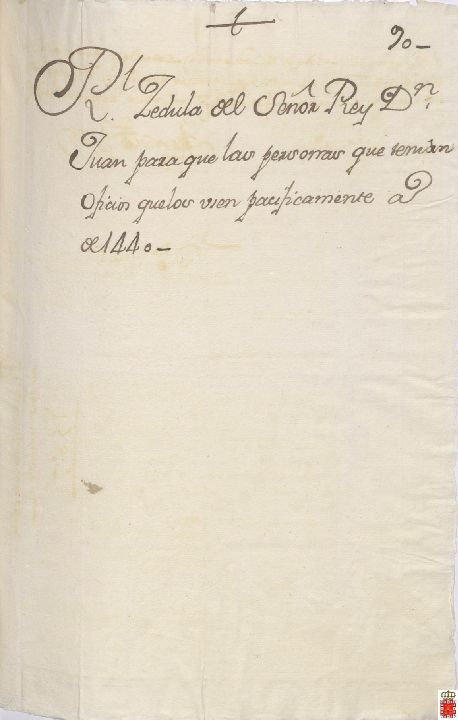 90-
Rl. Zedula del Señor Rey Dn.
Juan para que las personas que tenian
Oficios quelos usen pacificamente a
de 1440-